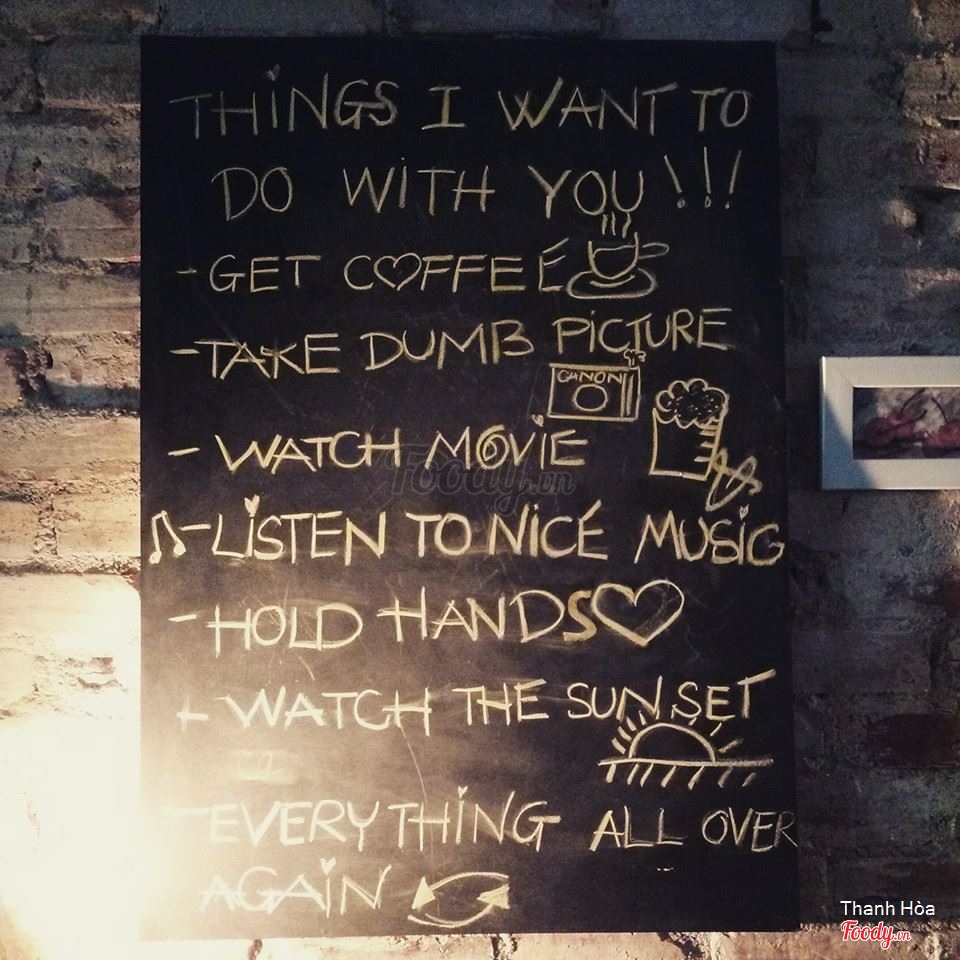 THINGS I WANT TO
DO WITH YOU!!!
-GET COFFEÉ
-TAKE DUMB PICTURE
CANON
- WATCH MOVIE
Foody.vn
-LISTEN TO NICÉ MUSIC
-HOLD HANDS
- WATCH THE SUNSET
-EVERYTHING ALL OVER
AGAIN
Thanh Hòa
Foody.vn